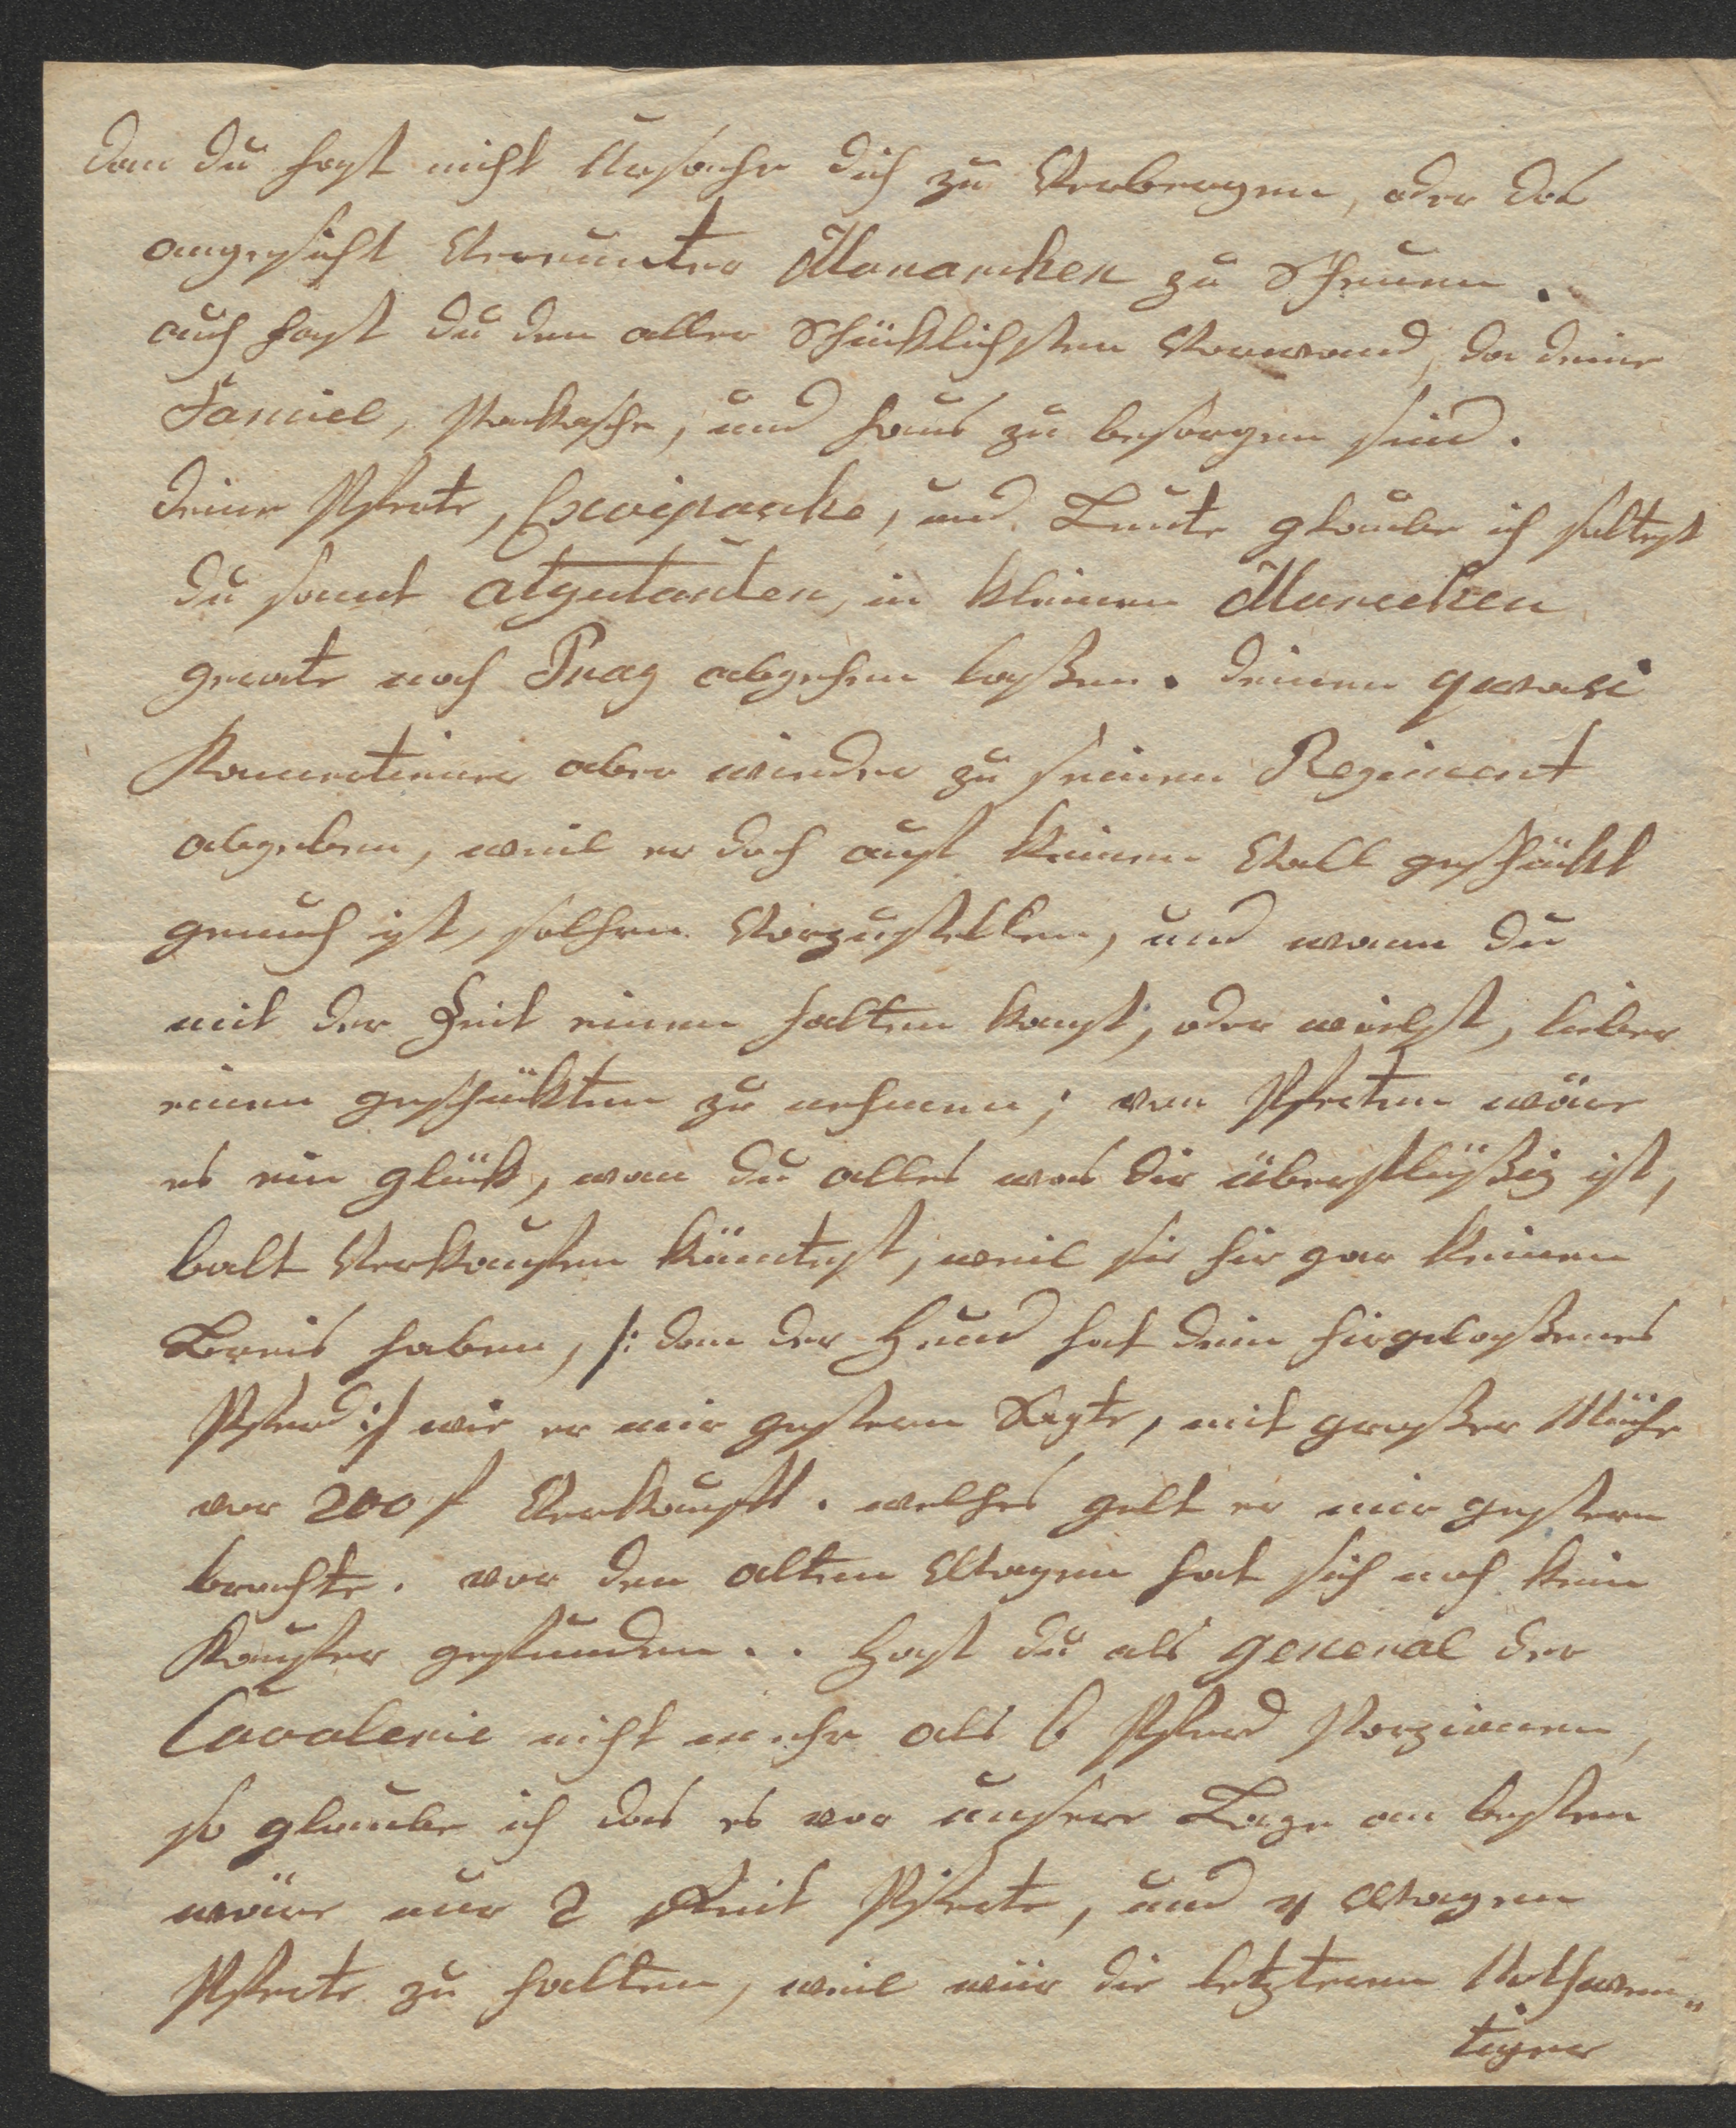 dan du hast nicht Ursache dich zu Verbergen, oder das
angesicht Vereunter Monarchen zu Scheuen.
auch hast du den aller Schücklichsten Vorwand, da deine
Famiel, Packasche, und haus zu besorgen sind.
deine Pferte, Eqvipasche, und Leute glaube ich soltest
du samt atgutanten, in kleinen Marschen
gerate nach Prag abgehen laßen. deinen qwasi
Kamertiener aber wieder zu seinen Regiment
abgeben, weil er doch auf keinen Vall geschükt
genuch ist, solchen Vorzustellen, und wann du
mit der Zeit einen halten kanst, oder wielst, lieber
einen geschükten zu nehmen; von Pferten wäre
es ein glük, wan du alles was dir überflüßig ist,
balt Verkaufen käntest, weil sie hir gar keinen
Breis haben, /: dan der Hund hat dein hirgelaßenes
Pferd :/ wie er mir gestern Sagte, mit großer Mühe
vor 200 f Verkauft. welches gelt er mir gestern
brachte. vor den alten Wagen hat sich noch kein
Kaufer gefunden.. Hast du als general der
Cavalerie nicht mehr als 6 Pferd Porzionen,
so glaube ich das es vor unsere Lage am besten
wäre nur 2 Reit Pferte, und 4 Wagen
Pferte zu halten, weil wür die letzteren Nothwen"
tiger